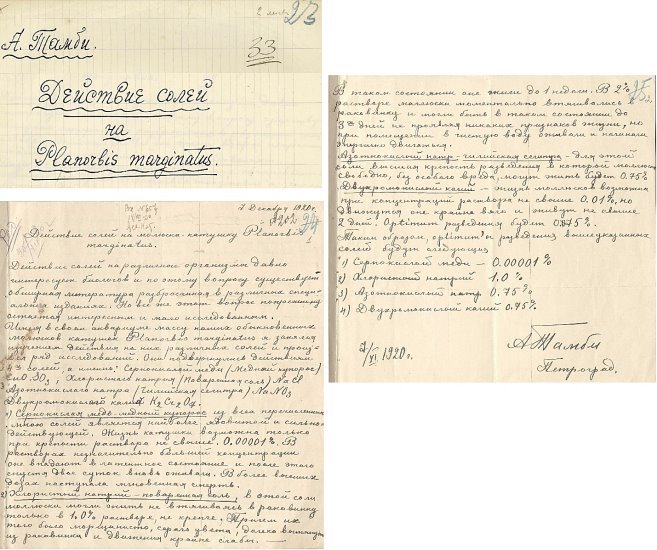 2 23
А. Тамби.
33
Действие солей
на
Planorbis marginatus.
7 Декабря 1920 г.
24
Действие солей на молюска-катушку Planorbis
marginatus.
Действие солей на различные организмы давно
интересует биологов и по этому вопросу существует
обширная литература разбросанная в различных специ-
альных изданиях. Но всё же этот вопрос попрежнему
остается интересным и мало исследованным.
Имея в своем аквариуме массу наших обыкновенных
молюсков катушек Planorbis marginatus я занялся
изучением действия на них различных солей и произ-
вел ряд исследований. Они подвергались действиям
4х солей а именно: Сернокислой меди (Медный купорос)
CuO.SO3, Хлористого натрия (Поваренная соль) NaCl
Азотнокислого натра (Чилийская селитра) NaNO3
Двухромокислый калий K2Cr2O7.
1) Сернокислая медь-медный купорос из всех перечисленных
мною солей является наиболее ядовитой и сильно
действующей. Жизнь катушки возможна только
при крепости раствора не свыше 0.00001%. В
растворах незначительно большей концентрации
оне впадают в латентное состояние и после этого
спустя двое суток вновь оживали. В более высоких
дозах наступала мгновенная смерть.
2) Хлористый натрий-поваренная соль, в этой соли
моллюски могли жить не втягиваясь в раковинку
только в 1,0% растворе, не крепче. Причем их
тело было морщинисто, серого цвета, далеко вытянуто
из раковинки и движения крайне слабы.
25
В таком состоянии оне жили до 1 недели. В 2%
растворе моллюски моментально втягивались в
раковинку и могли быть в таком состоянии до
3х дней не проявляя никаких признаков жизни, но
при помещении в чистую воду оживали и начинали
энергично двигаться.
Азотнокислый натр-чилийская селитра - для этой
соли, высшая крепость разведения в которой моллюски
свободно, без особого вреда, могут жить будет 0.75%
Двухромокислый калий - жизнь моллюсков возможна
при концентрации раствора не свыше 0.01%, но
движутся оне крайне вяло и живут не свыше
2 дней. Optimum разведения будет 0.075%.
Таким образом, optimum'ы разведения вышеуказанных
солей будут следующие
1) Сернокислая медь - 0.00001%
2) Хлористый натрий 1.0%
3) Азотнокислый натр 0.75%
4) Двухромокислый калий 0.75%.
7/XI 1920 г.
А Тамби
Петроград.